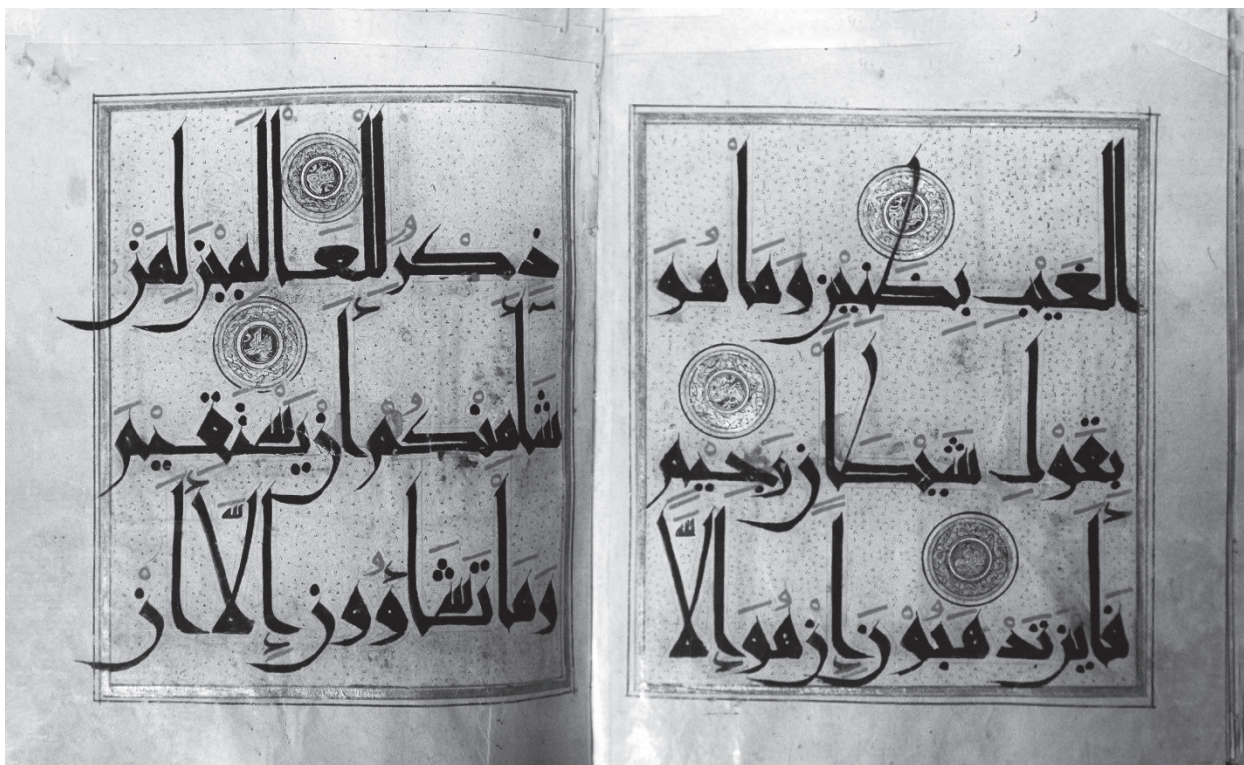 الْغَيْبِ بِضَنِيْنٍ وَمَا هُوَ
بِقَوْلِ شَيْطَانٍ رَجِيْمٍ
فَأَيْنَ تَذْهَبُوْنَ إِنْ هُوَ إِلَّا
ذِكْرٌ لِلْعَالَمِيْنَ لِمَنْ
شَآءَ مِنْكُمْ أَنْ يَسْتَقِيْمَ
وَمَا تَشَاؤُونَ إِلَّا أَنْ